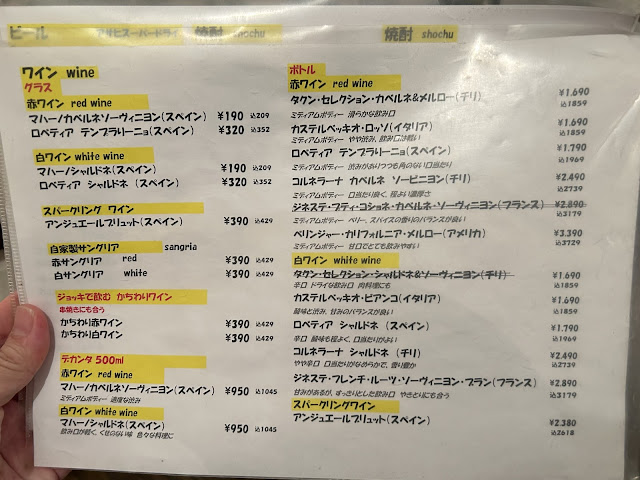 ビール アサヒスーパードライ
焼酎 shochu
焼酎 shochu
ワイン wine
グラス
赤ワイン red wine
マハーノカベルネソーヴィニヨン(スペイン) ¥190 込209
ロペティア テンプラリーニョ(スペイン) ¥320 込352
白ワイン white wine
マハーノシャルドネ(スペイン) ¥190 込209
ロペティア シャルドネ (スペイン) ¥320 込352
スパークリング ワイン
アンジュエールブリュット(スペイン) ¥390 込429
自家製サングリア sangria
赤サングリア red ¥390 込429
白サングリア white ¥390 込429
ジョッキで飲む かちわりワイン
串焼きにも合う
かちわり赤ワイン ¥390 込429
かちわり白ワイン ¥390 込429
デカンタ 500ml
赤ワイン red wine
マハーノカベルネソーヴィニヨン(スペイン) ¥950 込1045
ミディアムボディー 適度な渋み
白ワイン white wine
マハーノシャルドネ(スペイン) ¥950 込1045
飲み口が軽く、くせのない味 色々な料理に
ボトル
赤ワイン red wine
タクン・セレクション・カベルネ&メルロー(チリ) ¥1.690
ミディアムボディー 滑らかな飲み口 込1859
カステルベッキオ・ロッソ(イタリア) ¥1.690
ミディアムボディー やや渋み、飲み口は軽い 込1859
ロペティア テンプラリーニョ(スペイン) ¥1.790
ミディアムボディー 渋みがありつつも角のない口当たり 込1969
コルネラーナ カベルネ ソービニヨン(チリ) ¥2.490
ミディアムボディー 口当たり良く、程よい濃厚さ 込2739
ジネステ・プティ・コショネ・カベルネ・ソーヴィニヨン(フランス) ¥2.890
ミディアムボディー ベリー、スパイスの香りのバランスが良い 込3179
ベリンジャー・カリフォルニア・メルロー(アメリカ) ¥3.390
ミディアムボディー 甘口でとても飲みやすい 込3729
白ワイン white wine
タクン・セレクション・シャルドネ&ソーヴィニヨン(チリ) ¥1.690
辛口 ドライな飲み口 肉料理にも 込1859
カステルベッキオ・ビアンコ(イタリア) ¥1.690
酸味と渋み、甘みのバランスが良い 込1859
ロペティア シャルドネ (スペイン) ¥1.790
辛口 酸味も程よく、口当たりがよい 込1969
コルネラーナ シャルドネ (チリ) ¥2.490
やや辛口 口当たりがなめらかで、香り豊か 込2739
ジネステ・フレンチ・ルーツ・ソーヴィニヨン・ブラン(フランス) ¥2.890
甘みがあるが、すっきりとした飲み口 やきとりにも合う 込3179
スパークリングワイン
アンジュエールブリュット(スペイン) ¥2.380
込2618